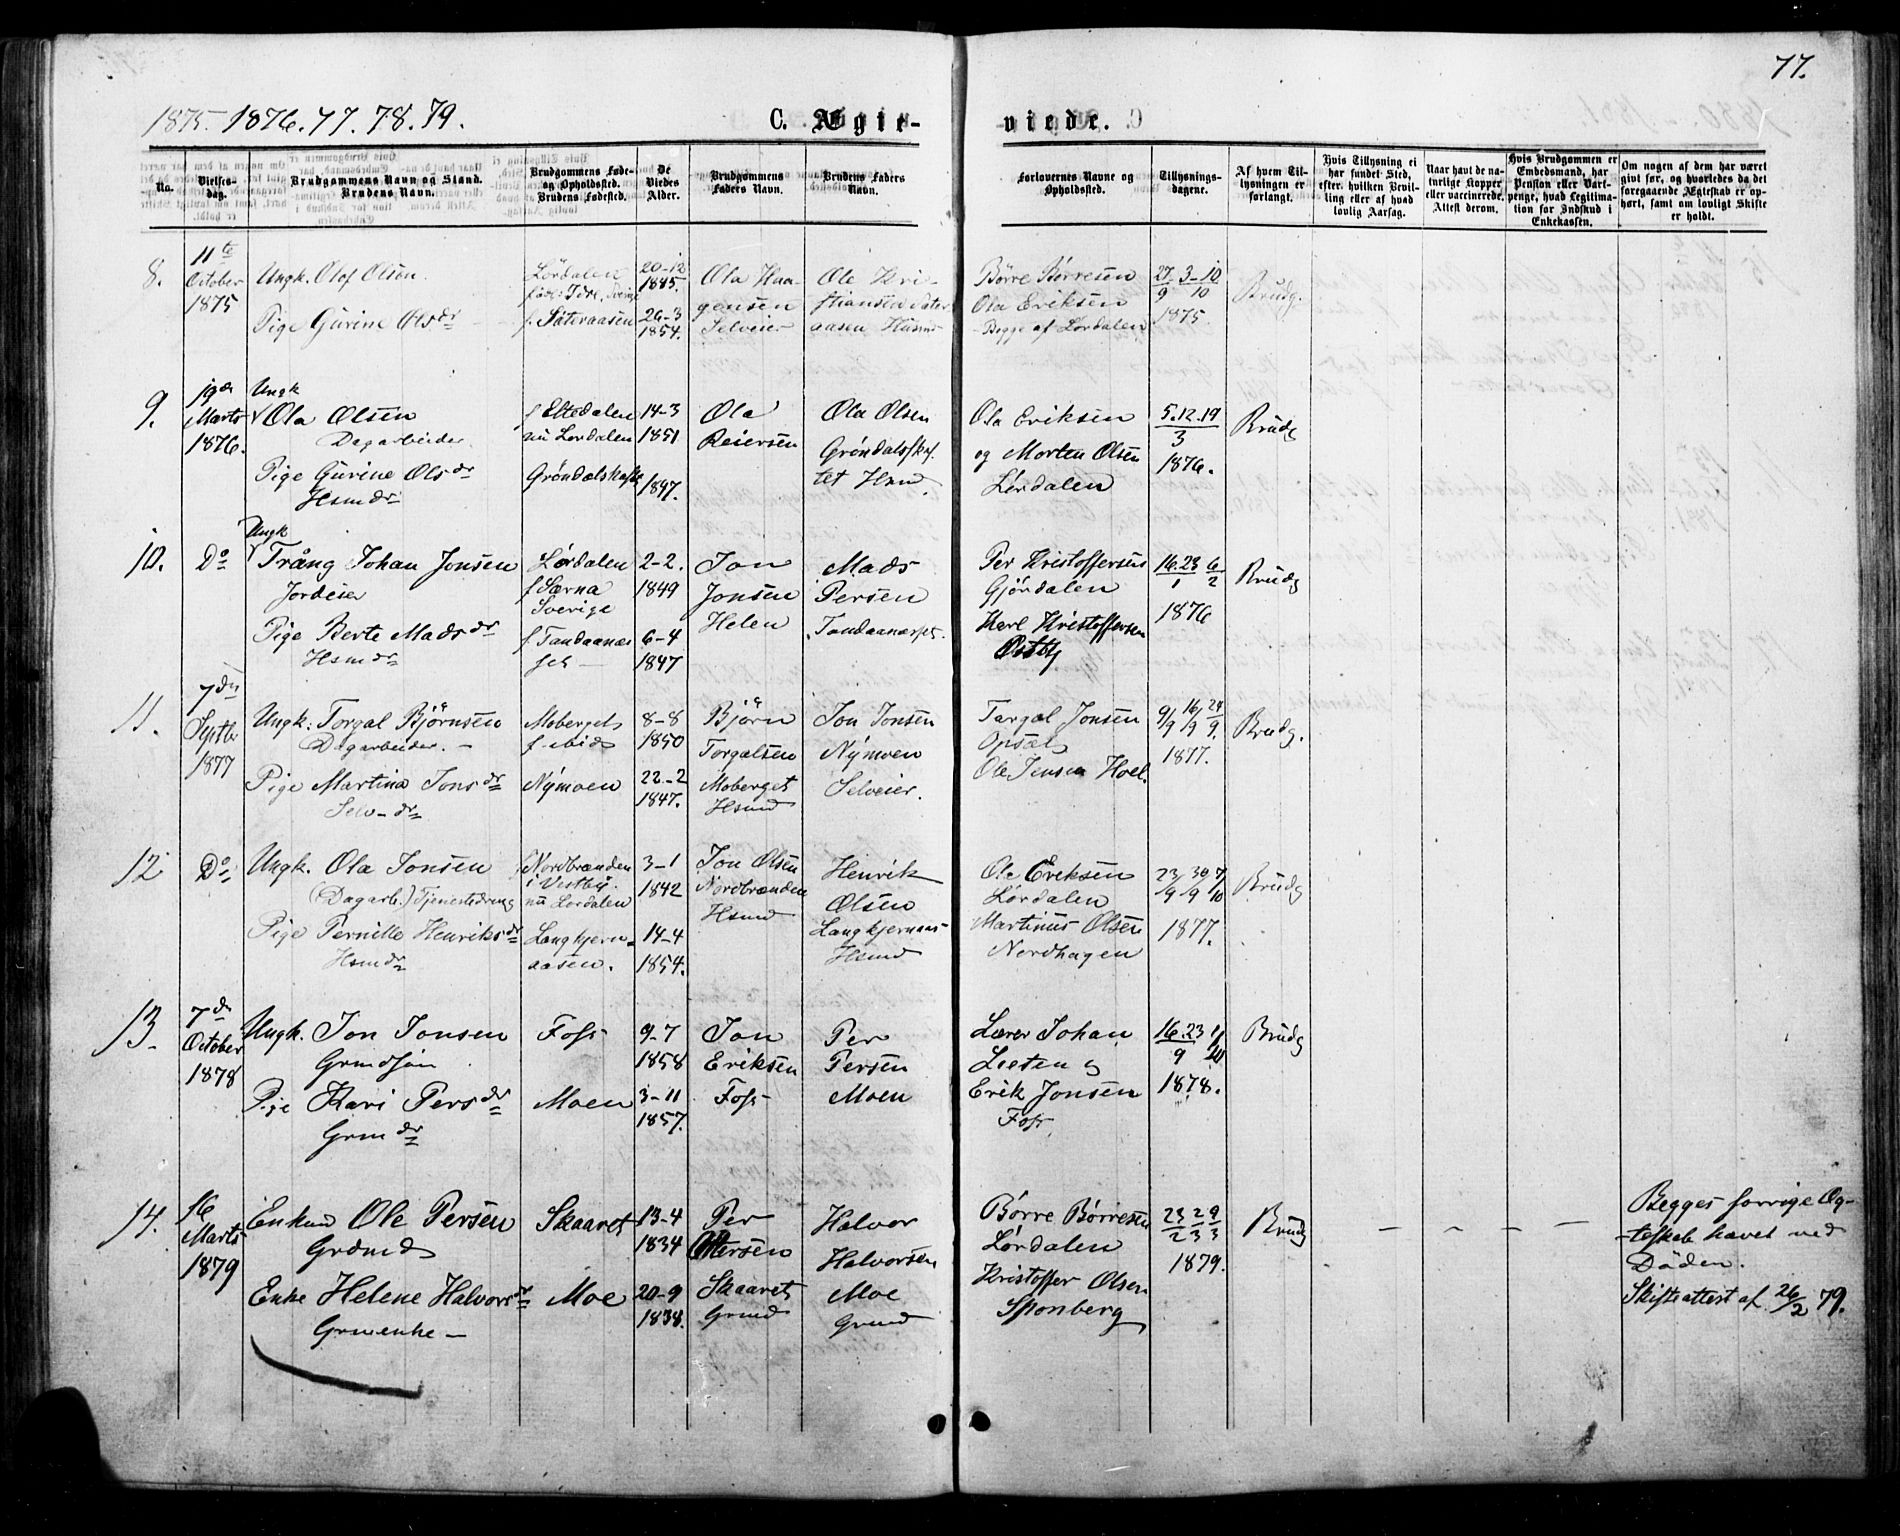 77.
1875. 1876. 77. 78. 79.
C. Ægte-
viede.
No.
Vielses-
dag.
Brudgommens Navn og Stand.
Brudens Navn.
Brudgommens Føde-
og Opholdssted.
Brudens Fødested.
De
Viedes
Alder.
Brudgommens
Faders Navn.
Brudens Faders
Navn.
Forlovernes Navne og
Opholdssted.
Tillysnings-
dagene.
Af hvem Til-
lysningen er
forlangt.
Hvis Tillysning ei
har fundet Sted,
efter hvilken Bevil-
ling eller af hvad
lovlig Aarsag.
Naar havt de na-
turlige Kopper
eller vaccinerede.
Attest derom.
Hvis Brudgommen er
Embedsmand, har
Pension eller Vart-
penge, hvad Legitima-
tion for Indskud i
Enkekassen.
Om nogen af dem har været
gift før, og hvorledes da det
foregaaende Ægteskab er op-
hørt, samt om lovligt Skifte
er holdt.
8.
11te
October
1875
Ungk. Olof Olsen.
Pige Gurine Olsdr
Lördalen
född i Idre, Sverige
f. Säteraasen
20-12
1845.
26-3
1854.
Ola Haa-
gensen
Selveier
Ole Kri-
stiansen Säter
aasen Husm
Börre Börresen
Ola Eriksen
Begge af Lørdalen
27/9 3-10/10
1875
Brudg.
9.
19de
Marts
1876.
Ungk
Ola Olsen
Dagarbeider
Pige Gurine Olsdr
Hsmdr
f Eltedalen
nu Lørdalen
Grøndalskaftet
14-3
1851
1847.
Ola
Reiersen
Ola Olsen
Grøndalsskaf-
tet Hsm
Ola Eriksen
og Morten Olsen
Lørdalen
5.12.19/3
1876.
Brudg
10.
Do
Ungk
Trång Johan Jonsen
Jordeier
Pige Berte Madsdr
Hsmdr
Lørdalen
f Særna
Sverige
f. Tandaanæs
set
2-2.
1849
6-4
1847
Jon
Jonsen
Helen
Mads
Persen
Tandaanæsset.
Per Kristoffersen
Gjördalen
Karl Kristoffersen
Østby
16.23/1 6/2
1876
Brudg
11.
7de
Septbr
1877
Ungk: Torgal Björnsen
Dagarbeider. -
Pige Martina Jonsdr
Selv-dr
Moberget
f. ibid
Nýmoen
8-8
1850
22-2
1847.
Björn
Torgalsen
Moberget
Hsmd
Jon Jonsen
Nýmoen
Selveier.
Targal Jonsen
Opsal
Ole Jensen Hoel.
9/9 16/9 24/9.
1877.
Brudg.
12
Do
Ungk. Ola Jonsen
(Dagarb.) Tjenestedreng
Pige Pernille Henriksdr
Hsmdr
Nordbrænden
i Vestby.
nu Lørdalen
Langkjern-
aasen.
3-1
1842
14-4
1854.
Jon Olsen
Nordbrænden
Hsmd
Henrik
Olsen
Langkjernaas-
Hsmd
Ole Eriksen
Lørdalen
Martinus Olsen
Nordhagen
23/9 30/9 7/10
1877.
Brudg
13.
7de
October
1878
Ungk. Jon Jonsen
Grmdsön
Pige Kari Persdr
Grmdr
Foss
Moen
9-7
1858
3-11
1857.
Jon
Eriksen
Foss
Per
Persen
Moen
Lærer Johan
Leeten og
Erik Jonsen
Foss
16.23/9 1/10
1878.
Brudg
14.
16
Marts
1879
Enkm Ole Persen
Grdmd
Enke Helene Halvorsdr
Grmenke -
Skaaret
Moe
13-4
1834
20-9
1838.
Per
Ottersen
Skaaret
Grmd
Halvor
Halvorsen
Moe
Grmd
Börre Börresen
Lørdalen
Kristoffer Olsen
Sponberg
23/2 2/3 9/3
1879.
Brudg
- - - -
Begges forrige Æg-
teskab hævet ved
Döden.
Skifteattest af 26/2 79.